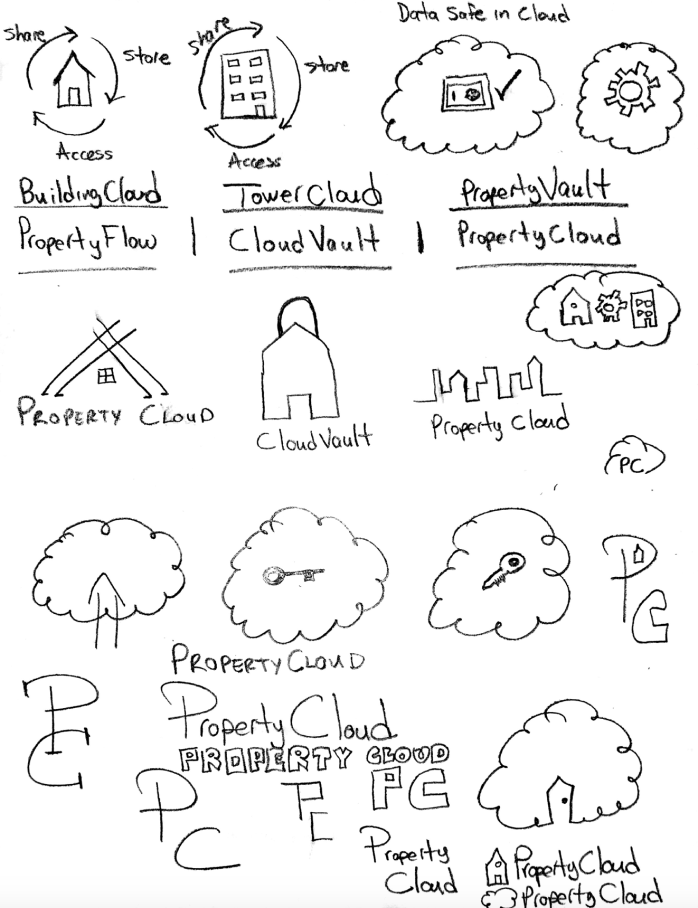 Data Safe in Cloud
share
store
Access
share
store
Access
BuildingCloud
TowerCloud
PropertyVault
PropertyFlow | CloudVault | PropertyCloud
PROPERTY CLOUD
CloudVault
Property Cloud
PC
PC
PROPERTYCLOUD
PC
PropertyCloud
PROPERTY CLOUD
PC
PC
PC
Property
Cloud
PropertyCloud
PropertyCloud